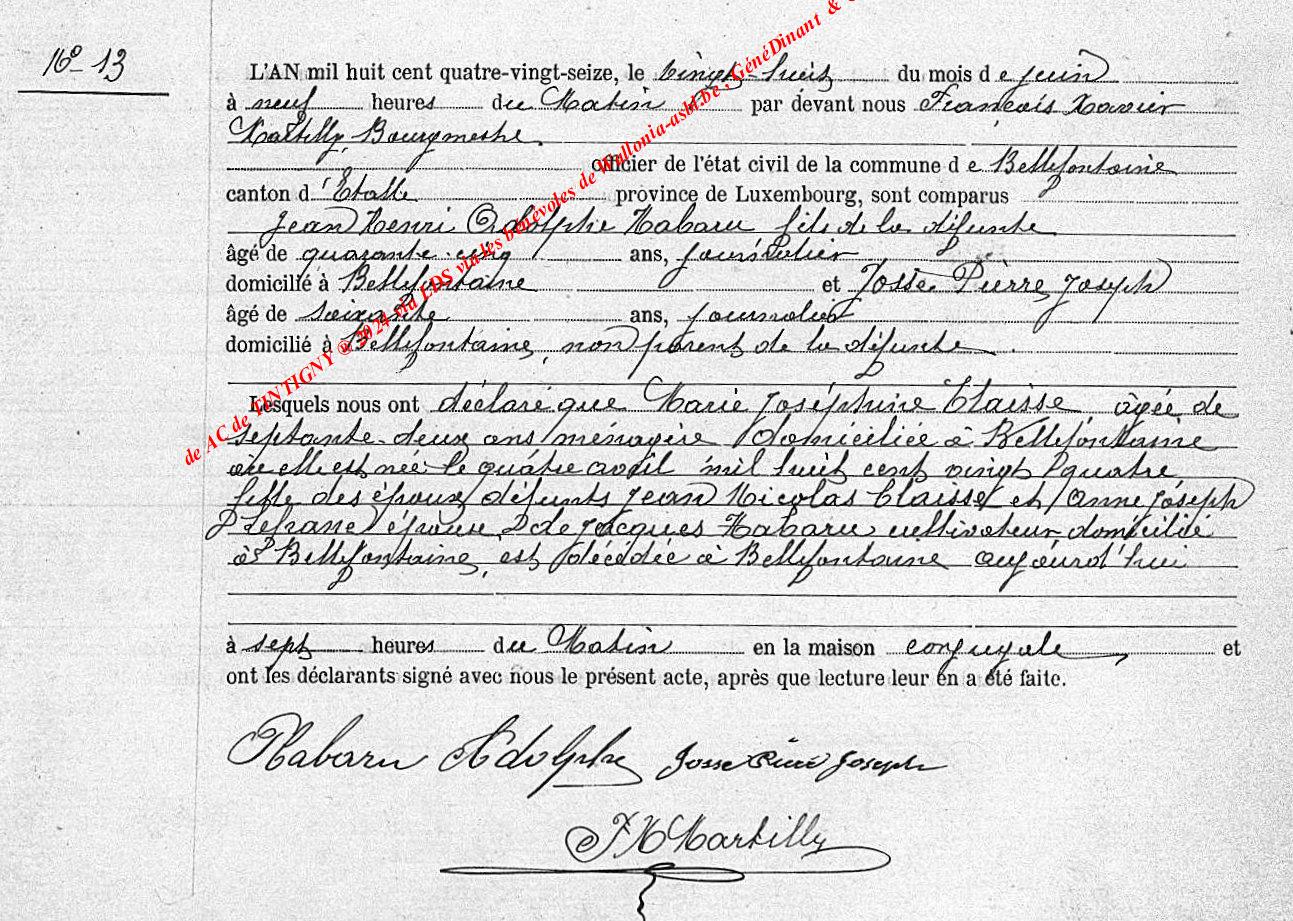 N° 13
L'AN mil huit cent quatre-vingt-seize, le vingt-huit du mois de juin
à neuf heures du Matin par devant nous François Xavier
Martilly, Bourgmestre.
officier de l'état civil de la commune de Bellefontaine
canton d'Etalle province de Luxembourg, sont comparus
Jean Henri Adolphe Habaru fils de la défunte
âgé de quarante cinq ans, journalier
domicilié à Bellefontaine et Josse Pierre Joseph
âgé de soixante ans, journalier
domicilié à Bellefontaine, non parent de la défunte.
Lesquels nous ont déclaré que Marie Joséphine Claisse, âgée de
septante-deux ans ménagère domiciliée à Bellefontaine
où elle est née le quatre avril mil huit cent vingt quatre
fille des époux défunts Jean Nicolas Claisse et Anne Joseph
épouse de Jacques Habaru cultivateur domicilié
à Bellefontaine, est décédée à Bellefontaine aujourd'hui
à sept heures du Matin en la maison conjugale, et
ont les déclarants signé avec nous le présent acte, après que lecture leur en a été faite.
Habaru Adolphe Josse Pierre Joseph
F X Martilly
de AC de TINTIGNY @ 2024 via LDS via les bénévoles de Wallonia-asbl.be, GénéDinant &